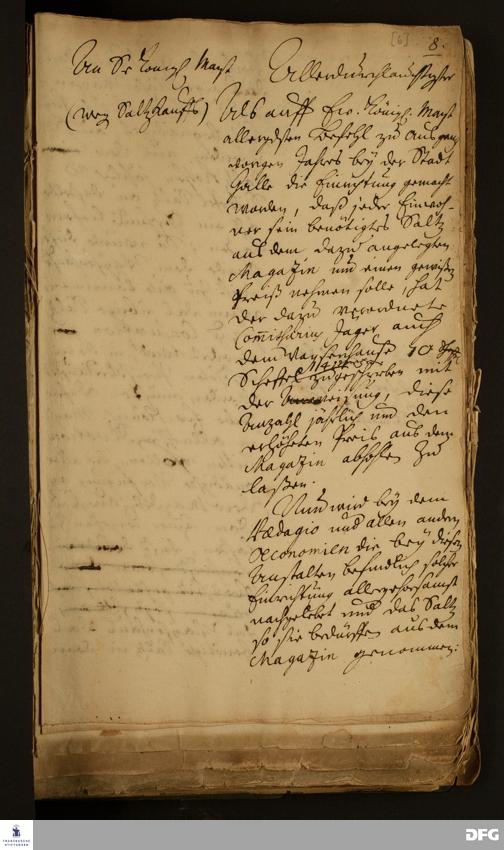 [6] 8.
An Sr Königl. Mayst
(weg Saltzkauffs)
Allerdurchlauchtigster
Als auff Ew. Königl. Mayst
allergdsten Befehl zu Ausgang
vorigen Jahres bey der Stadt
Halle die Einrichtung gemacht
worden, daß jeder Einwoh-
ner sein benötigtes Saltz
aus dem dazu angelegten
Magazin um einen gewissen
Preiß nehmen solle, hat
der dazu verordnete
Com̃issarius Jager auch
dem Waysenhause 10
Scheffel zugeschrieben mit
der, diese
Anzahl jährlich um den
erhöheten Preis aus dem
Magazin abholen zu
laßen.
Nun wird bey dem
Pædagio und allen andern
Oeconomien die bey diesen
Anstalten befindlich solcher
Einrichtung allergehorsamst
nachgelebet und das Saltz
so sie bedürffen aus dem
Magazin genommen:
FRANCKESCHE
STIFTUNGEN
DFG